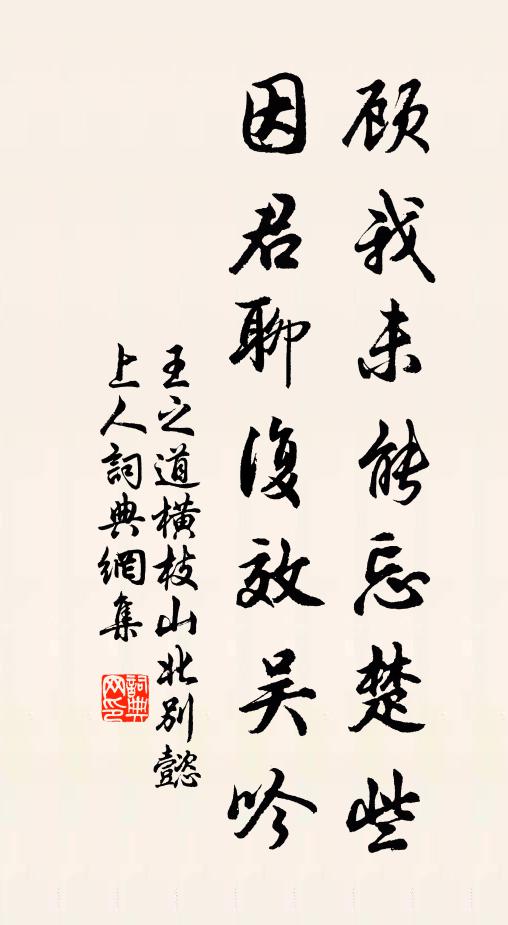 顾我未能忘楚些
因君聊復效吴吟
王之道橫枝山北別懿
上人詞典網集
詞典网印